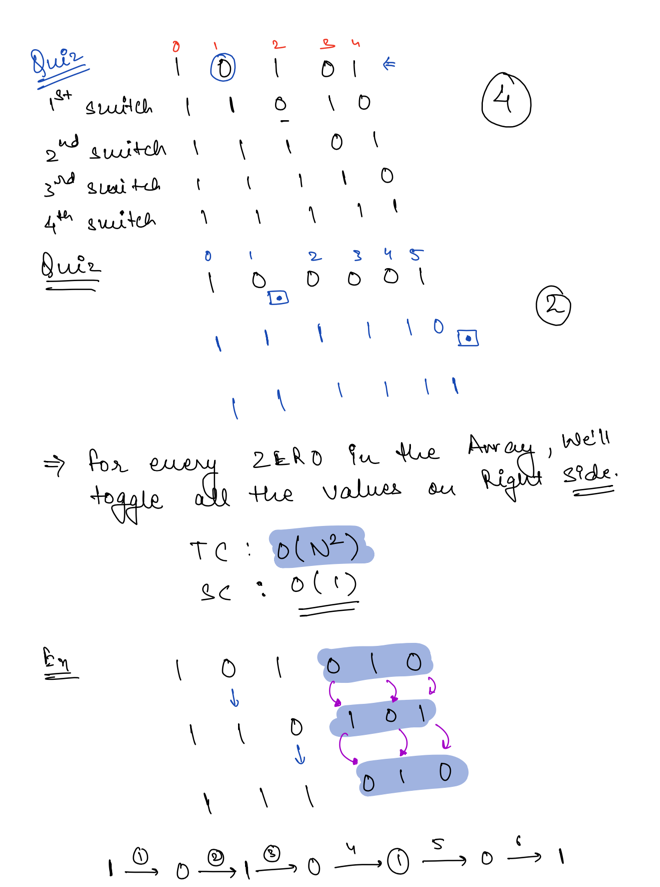 0 1 2 3 4
Quiz 1 0 1 0 1 ⇐
1st switch 1 1 0 1 0
4
2nd switch 1 1 1 0 1
3rd switch 1 1 1 1 0
4th switch 1 1 1 1 1
0 1 2 3 4 5
Quiz 1 0 0 0 0 1
2
1 1 1 1 1 0
1 1 1 1 1 1
⇒ for every ZERO in the Array, we'll
toggle all the values on Right side.
TC : O(N²)
SC : O(1)
Ex 1 0 1 0 1 0
1 1 0 1 0 1
1 1 1 0 1 0
1 →① 0 →② 1 →③ 0 →4 ① →5 0 →6 1